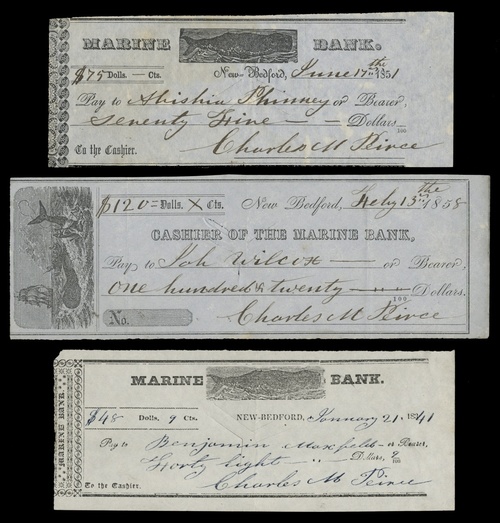 MARINE BANK.
$75 Dolls. — Cts. New-Bedford, June 17th 1851
Pay to Abishia Phinney or Bearer,
Seventy Five — — Dollars 100
To the Cashier. Charles M Peirce
$120 = Dolls. X Cts. New Bedford, July 13th 1858
CASHIER OF THE MARINE BANK,
Pay to Job Wilcox — or Bearer,
One hundred & twenty — 100 Dollars.
No. Charles M Peirce
MARINE BANK
MARINE BANK.
$48 Dolls. 9 Cts. NEW-BEDFORD, January 21. 1841
Pay to Benjamin Maxfield — or Bearer,
Forty Eight — Dollars, 9/100
To the Cashier. Charles M Peirce